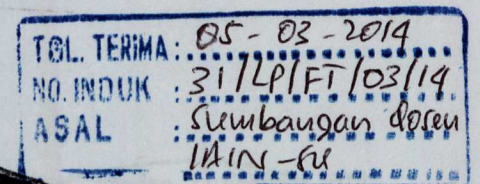 TGL. TERIMA : 05 - 03 - 2014
NO. INDUK : 31/LP/FT/03/14
ASAL : Sumbangan Dosen
IAIN-SU